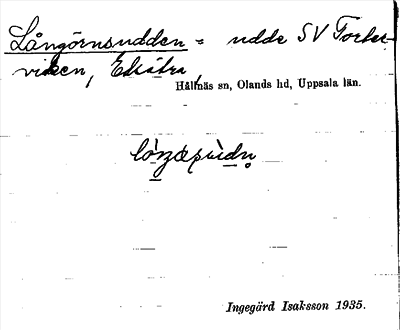 Långörnsudden = udde SV Torber-
viken, Eksätra,
Hållnäs sn, Olands hd, Uppsala län.
Ingegärd Isaksson 1935.